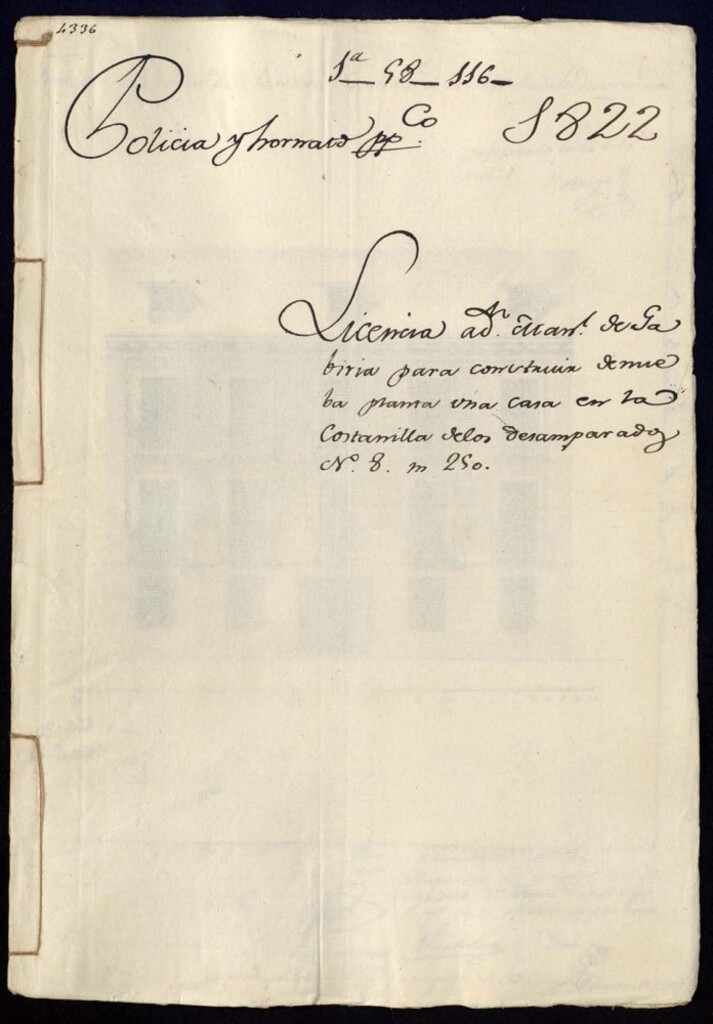 4336
1ª 58 116
Policia y hornato ppCo. 1822
Licencia a Dn. Manl. de Ga
biria para construir de nue
ba planta una casa en la
Costanilla delos desamparados
Nº. 8. m 250.